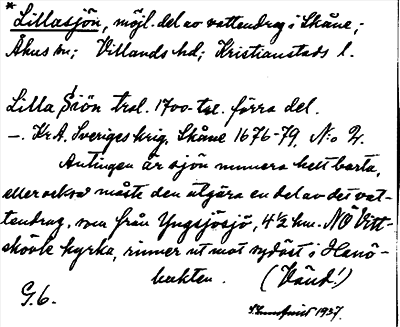 * Lillasjön, möjl. del av vattendrag i Skåne,;
Åhus sn; Villands hd; Kristianstads l.
Lilla Siön trol. 1700-tal. förra del.
–. Kr. A. Sveriges krig, Skåne 1676-79, N:o 2.
Antingen är sjön numera helt borta,
eller också måste den utgöra en del av det vat-
tendrag, som från Yngsjösjö, 4½ km. NÖ Vitt-
skövle kyrka, rinner ut mot sydöst i Hanö-
bukten. (Vänd!)
G. 6.
1937.